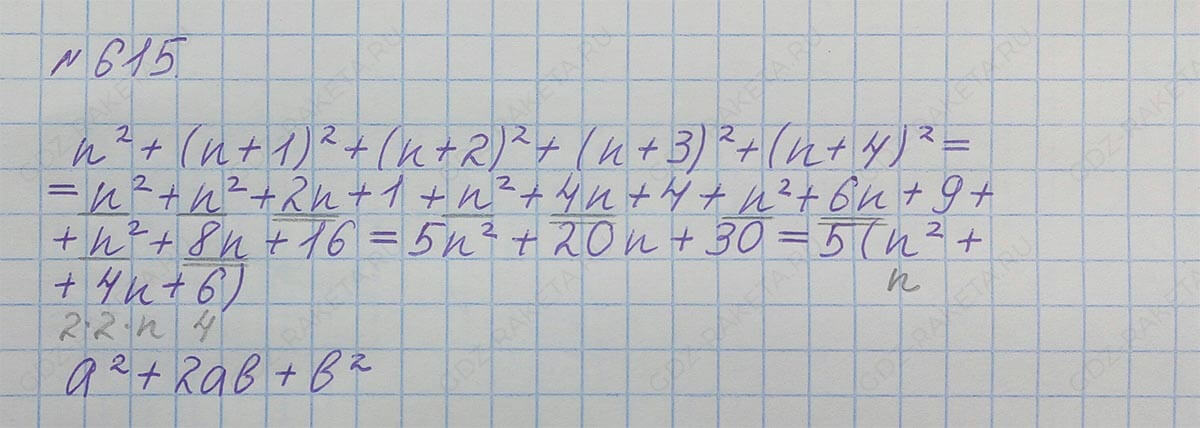 № 615
n² + (n + 1)² + (n + 2)² + (n + 3)² + (n + 4)² =
= n² + n² + 2n + 1 + n² + 4n + 4 + n² + 6n + 9 +
+ n² + 8n + 16 = 5n² + 20n + 30 = 5(n² +
n
+ 4n + 6)
2·2·n 4
a² + 2ab + b²
GDZ-RAKETA.RU